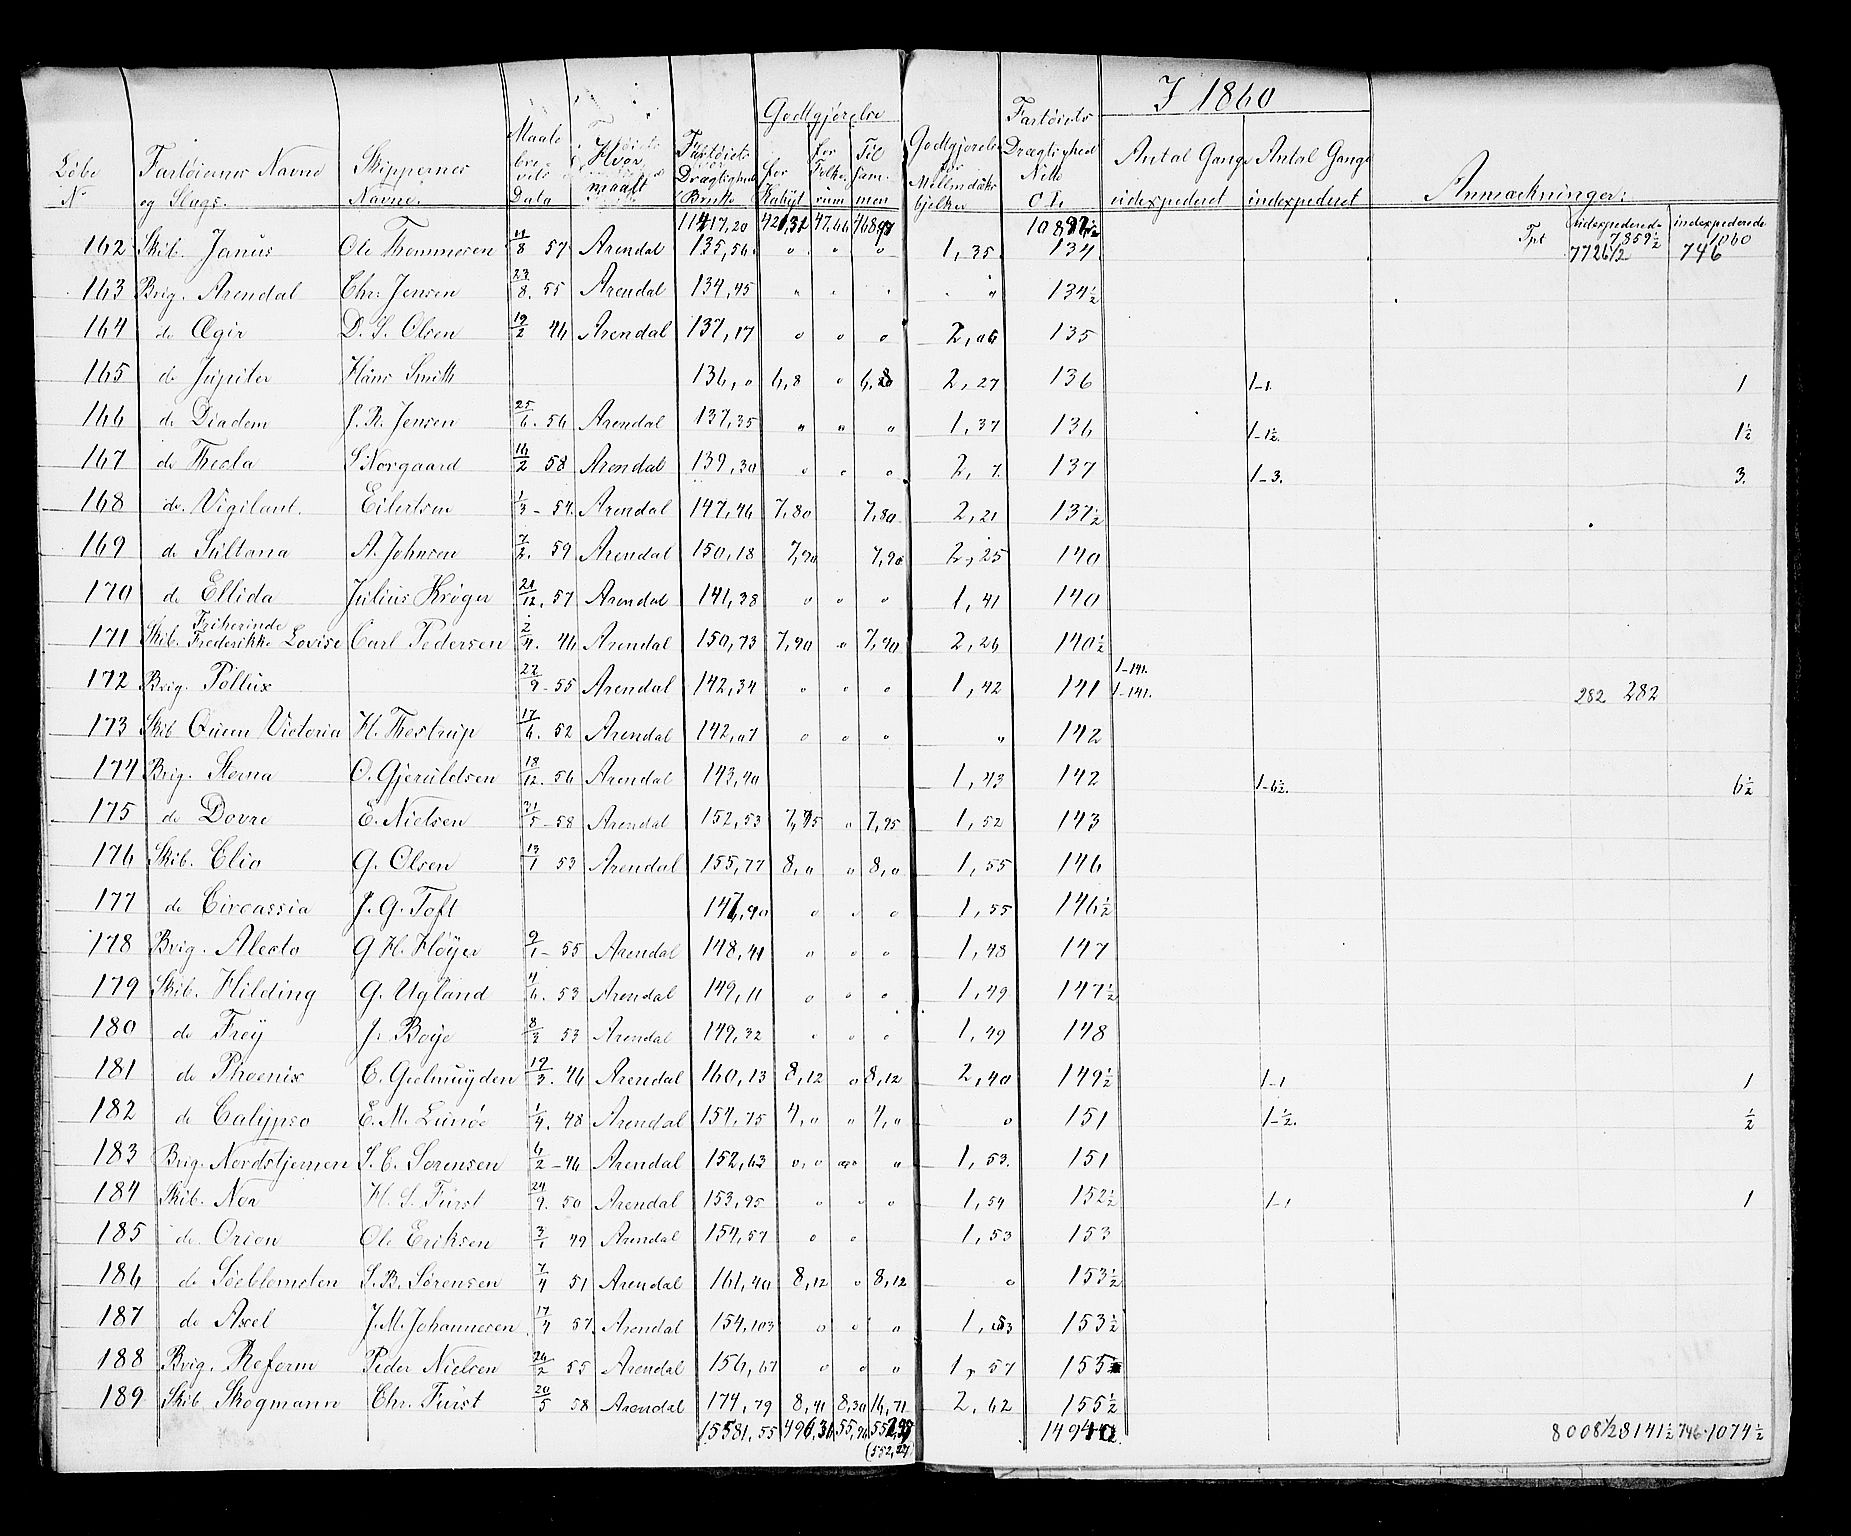 I 1860
Godtgjørelse
Løbe N Fartøiernes Navne og Slags. Skippernes Navne. Maalebrevets Data Hvor maalt Fartøiets Drægtighed Brutto for Kahyt for Folkerum Tilsammen Godtgjørelse for Mellemdæksbjelker Fartøiets Drægtighed Netto C.L. Antal Gange udexpederet Antal Gange indexpederet Anmærkninger:
11417,20 47,66 Tpt udexpederede 7859½ indexpederede 1060
162 Skib. Janus Ole Thommesen 57 Arendal 135,56 " " " 1,35 134 7726½ 746
163 Brig. Arendal Chr. Jensen 23/8. 55 Arendal 134,45 " " " " 134½
164 do Ægir D. S. Olsen 19/2 46 Arendal 137,17 " " " 2,06 135
165 do Jupiter Hans Smith 136,0 6,8 " 6,8 2,27 136 1-1. 1
166 do Diadem J. R. Jensen 25/6. 56 Arendal 137,35 " " " 1,37 136 1-1½. 1½
167 do Thecla S Norgaard 16/2 58 Arendal 139,30 " " " 2,7. 137 1-3. 3.
168 do. Vigilant. Eilertsen 1/3 - 54. Arendal 147,46 7,80 7,80 2,21 137½
169 do Sultana A. Johnsen 7/2. 59 Arendal 150,18 7,90 7,90 2,25 140
170 do Ellida Julius Krøger 21/12. 57 Arendal 141,38 " " " 1,41 140
171 Skib. Friherinde Frederikke Lovise Carl Pedersen 2/4. 46 Arendal 150,73 7,90 " 7,90 2,26 140½
172 Brig. Pollux 22/9 - 55 Arendal 142,34 " " " 1,42 141 1-141. 1-141. 282 282
173 Skib Queen Victoria H. Thestrup 17/6. 52 Arendal 142,07 " " " " 142
174 Brig. Sterna O. Gjeruldsen 18/12. 56 Arendal 143,40 1,43 142 1-6½. 6½
175 do Dovre E. Nielsen 31/5 - 58 Arendal 152,53 7,95 " 7,95 1,52 143
176 Skib. Clio G. Olsen 13/1 53 Arendal 155,77 8,0 " 8,0 1,55 146
177 do Circassia J. G. Toft 147,90 " " " 1,55 146½
178 Brig. Alecto G H. Høyer 9/1 - 55 Arendal 148,41 " " " 1,48 147
179 Skib. Hilding G. Ugland 4/6. 53 Arendal 149,11 " " " 1,49 147½
180 do Frey J. Boye 8/3 53 Arendal 149,32 " " " 1,49 148
181 do Phoenix C. Gielmuyden 19/3. 46 Arendal 160,13 8,12 " 8,12 2,40 149½ 1-1 1
182 do Calypso E. M. Lund 1/4. 48 Arendal 154,75 4,0 " 4,0 " 151 1-½. ½
183 Brig. Nordstjernen S. C. Sørensen 6/2 - 46 Arendal 152,63 " 1,53. 151
184 Skib. Nor H. S. Fürst 24/9. 50 Arendal 153,95 " " " 1,54 152½ 1-1 1
185 do. Orion Ole Eriksen 3/1 49 Arendal 154,57 " " 1,53 153
186 do Søeblomsten S. B. Sørensen 7/4 51 Arendal 161,40 8,12 " 8,12 " 153½
187 do Axel J. M. Johannesen. 17/4 57. Arendal 154,103 " " " 1,53 153½
188 Brig. Reform Peder Nielsen 26/2 55 Arendal 156,67 " " " 1,57 155
189 Skib Skogmann Chr. Fürst 20/5 58 Arendal 174,79 8,41 8,30 16,71 2,62 155½
15581,55 496,36 55,96 8008½ 8141½ 746 1074½
(552,24)